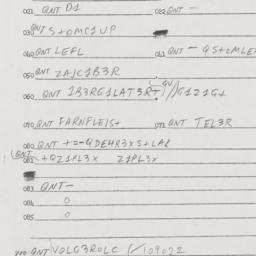 021 QNT D1 022 QNT -
030 QNT S+OMC1UP
040 QNT LEFL 041 QNT - QS+OMLE
050 QNT ZAJC1B3R
060 QNT 1B3RG1LAT3R G1Z1G1
070 QNT FARNFLEJS+ 071 QNT TEL3R
080 QNT +=-QDEHR3XS+LAL
QNT 081 +QZ1PL3X Z1PL3X
083 QNT -
084 0
085 0
QNT VOLG3ROLC / 109022